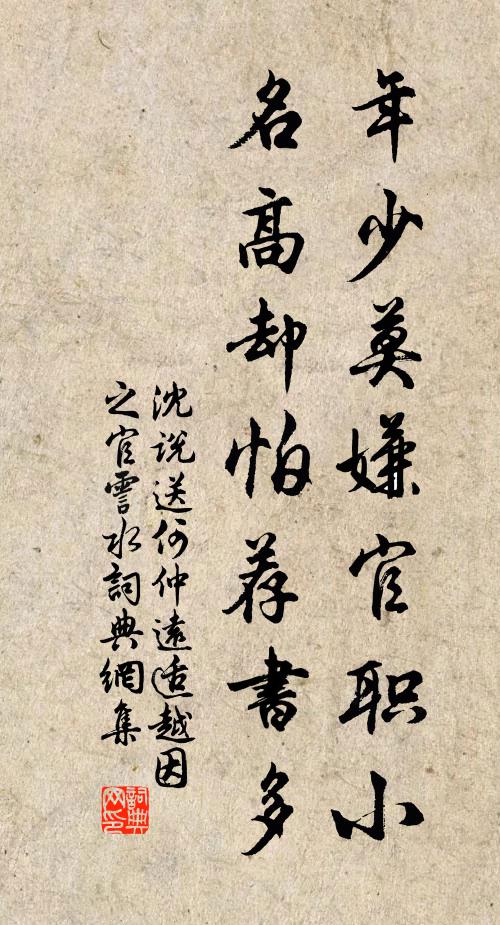 年少莫嫌官职小
名高却怕荐書多
沈说送何仲遠适越因
之官雪水詞典網集
詞典网印